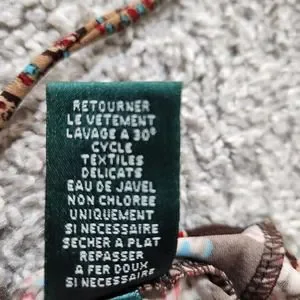 RETOURNER
LE VETEMENT
LAVAGE A 30°
CYCLE
TEXTILES
DELICATS
EAU DE JAVEL
NON CHLOREE
UNIQUEMENT
SI NECESSAIRE
SECHER A PLAT
REPASSER
A FER DOUX
SI NECESSAIRE